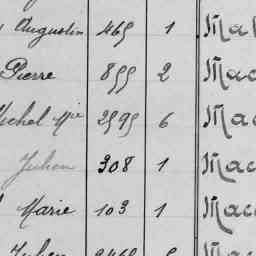 Augustin 465 1 Mac
Pierre 899 2 Mac
Michel Mie 2595 6 Mac
Julien 308 1 Mac
Marie 103 1 Mac
Julien